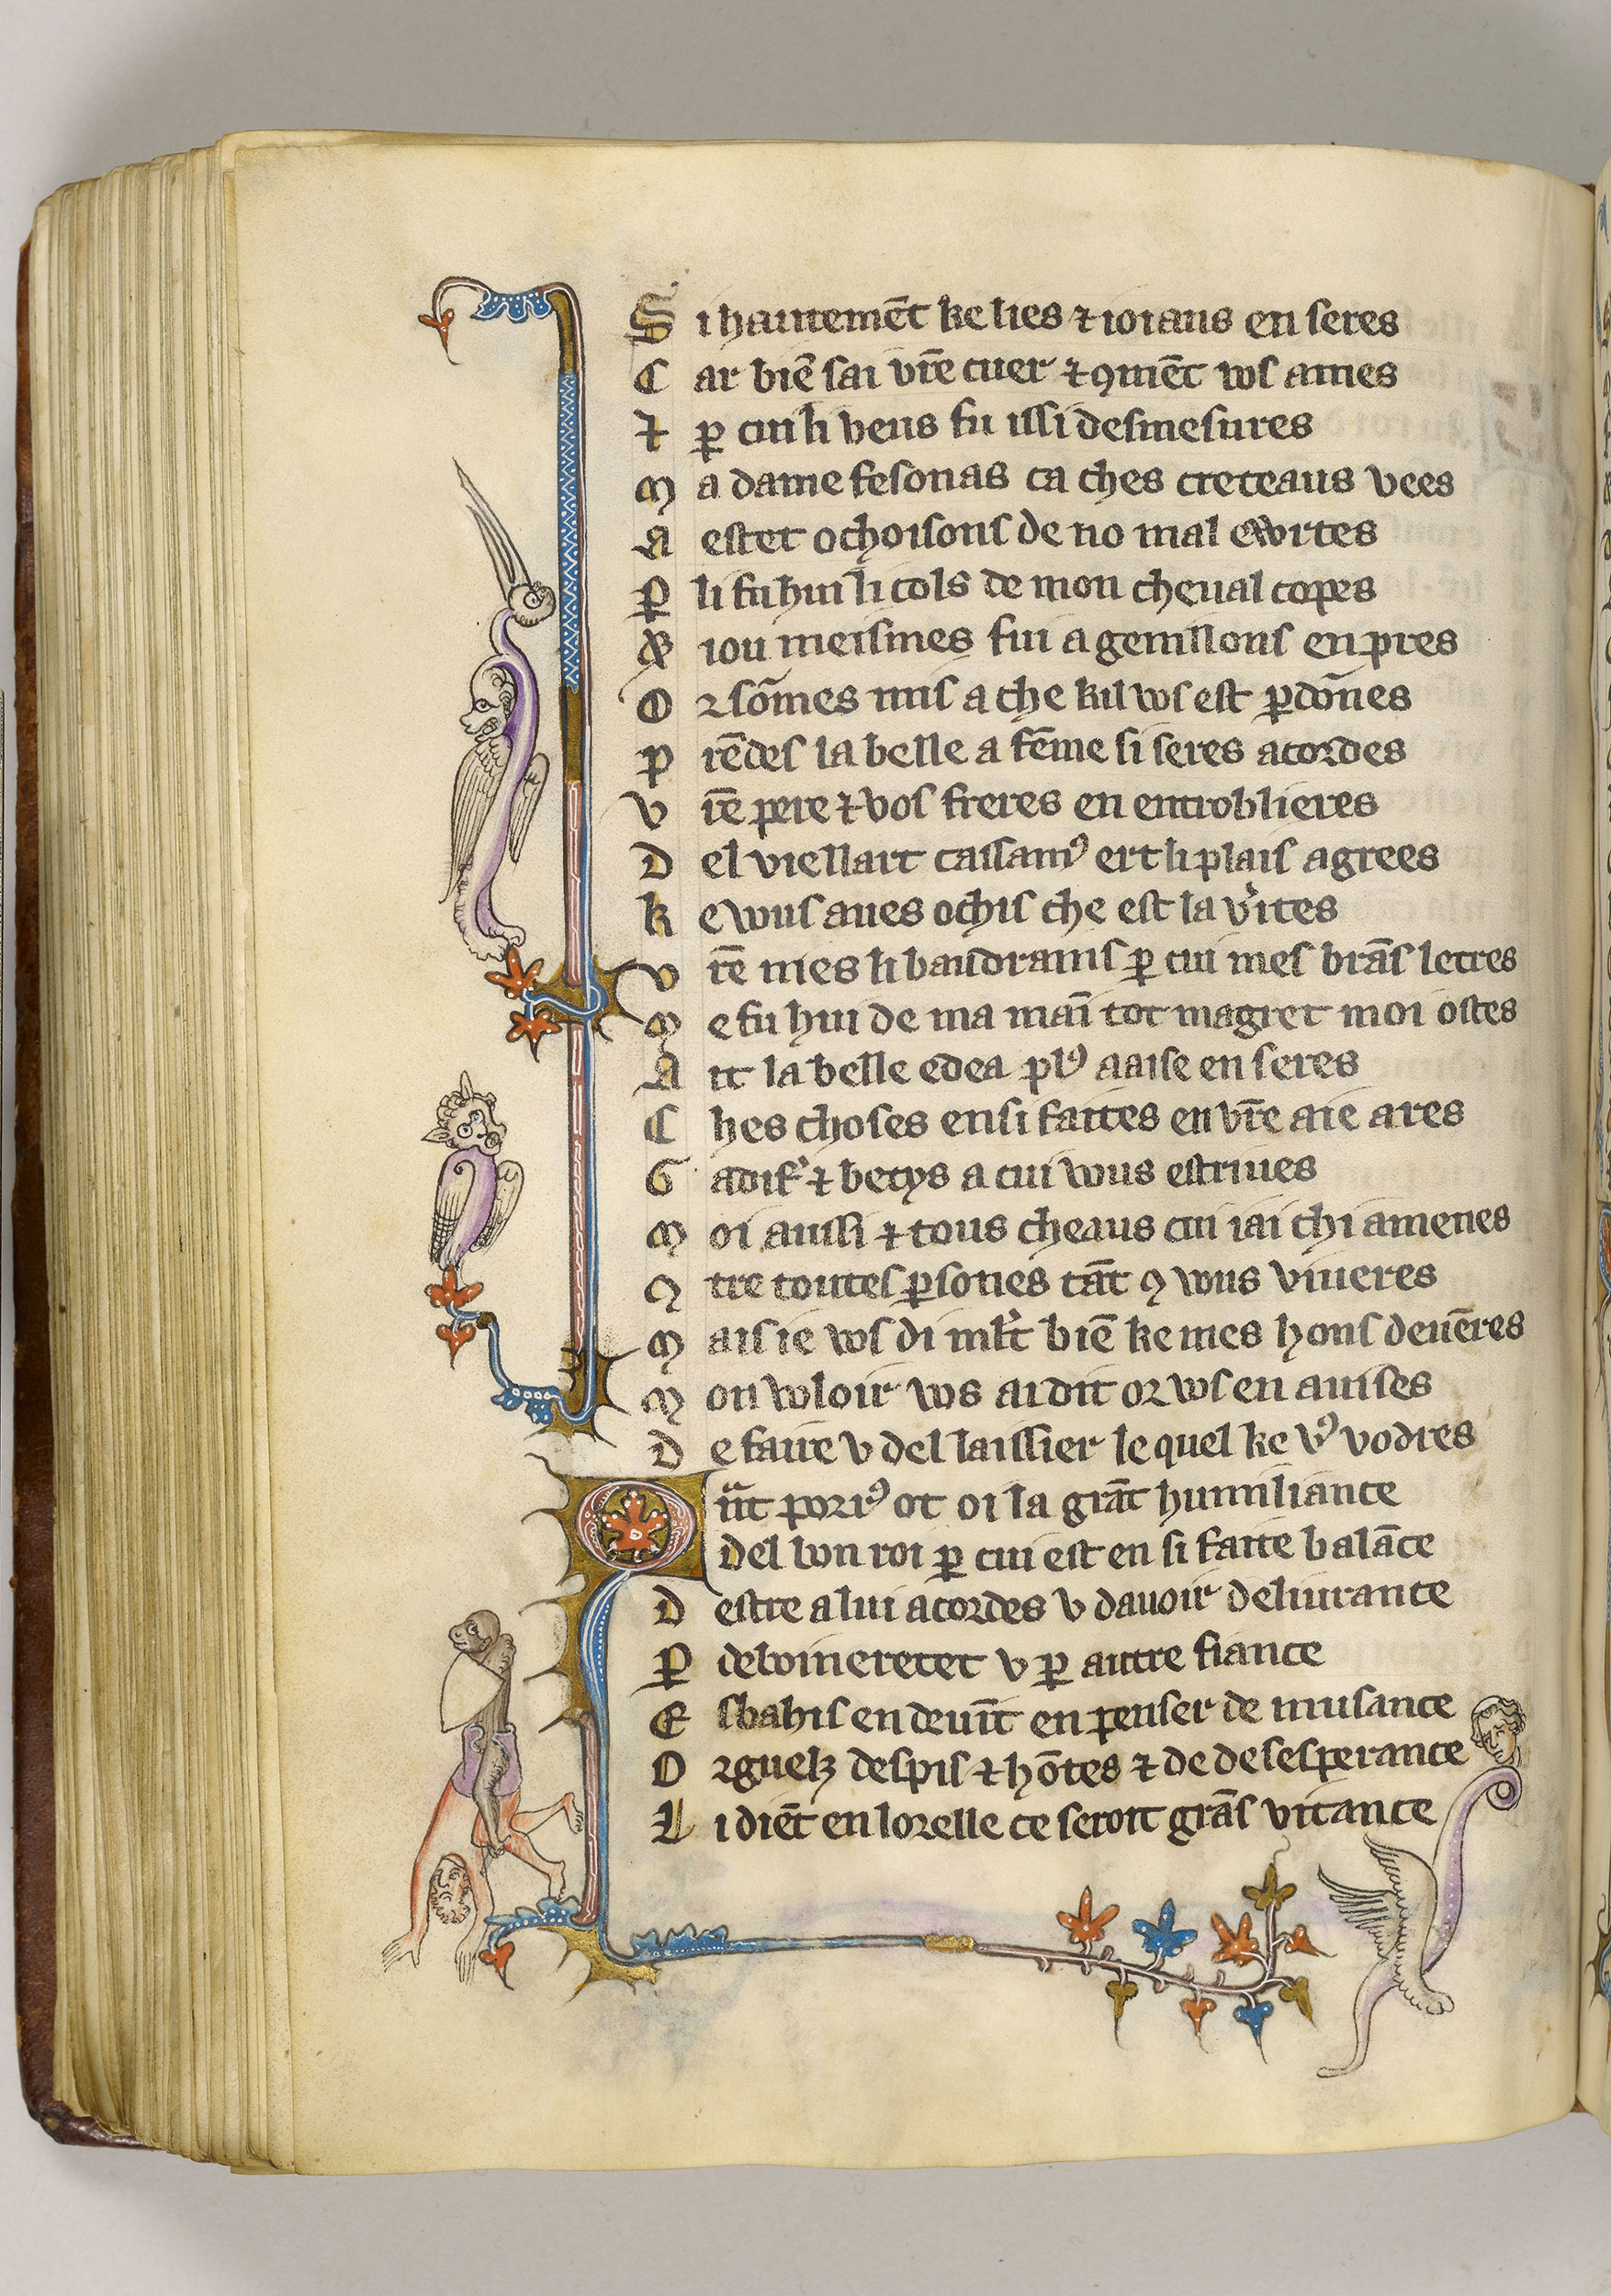 S i hautemēt ke lies ⁊ ioians en seres
C ar biē sai vr̄e cuer ⁊ ꝯmēt vos ames
⁊ ꝑ cui li veus fu issi desmesures
M a dame fesonas ca ches creteaus vees
A estet ochoisons de no mal ewrtes
P̲ li fu hui li cols de mon cheual copes
⁊ iou meismes fui a genillons en pres
O r sōmes mis a che kil vos est ꝑdōnes
P rēdes la belle a fēme si seres acordes
V r̄e pere ⁊ vos freres en entroblieres
D el viellart cassamꝰ ert li plais agrees
K e wus aues ochis che est la vˀites
V r̄e mes li baudrains ꝑ cui mes brās letres
M e fu hui de ma maī tot magret moi ostes
A it la belle edea plꝰ aaise en seres
C hes choses ensi faites en vr̄e aie ares
G adifˀ ⁊ betys a cui wus estriues
M oi aussi ⁊ tous cheaus cui iai chi amenes
Ꝯ tre toutes ꝑsones tāt ꝯ wus viueres
M ais ie vos di mlt̄ biē ke mes hons deuēres
M on voloir vos ai dit or vos en auises
D e faire v del laissier le quel ke vꝰ vodres
Q ūt porꝰ ot oi la grāt humiliance
del bon roi ꝑ cui est en si faite balāce
D estre a lui acordes v dauoir deliurance
P̲ deboineretet v ꝑ autre fiance
E sbahis en deuīt en penser de musance
O rguelz despis ⁊ hōtes ⁊ de desesperance
L i diēt en lorelle ce seroit grās vitance